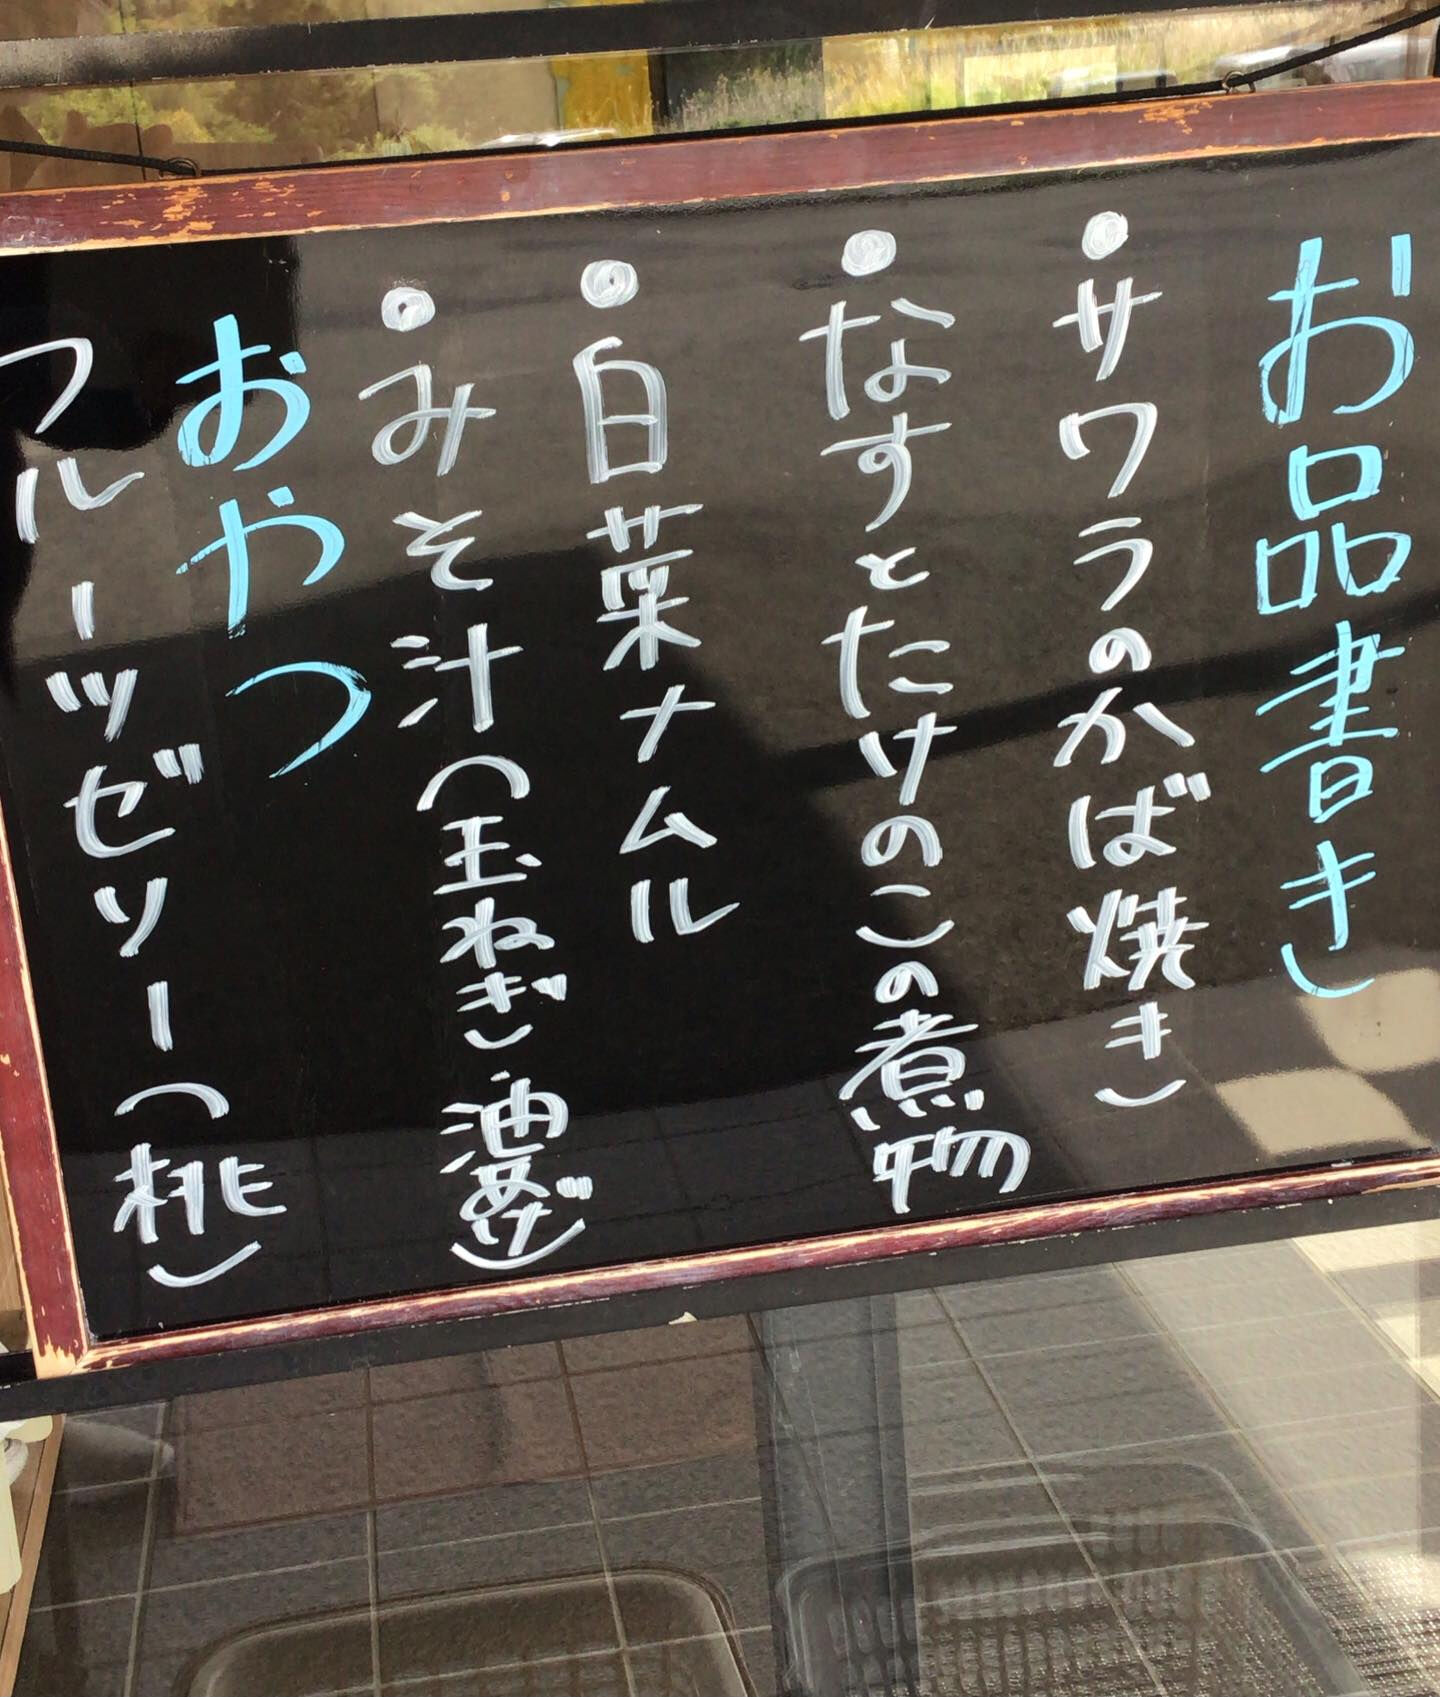 お品書き
●サワラのかば焼き
●なすとたけのこの煮物
●白菜ナムル
●みそ汁(玉ねぎ・油あげ)
おやつ
フルーツゼリー(桃)